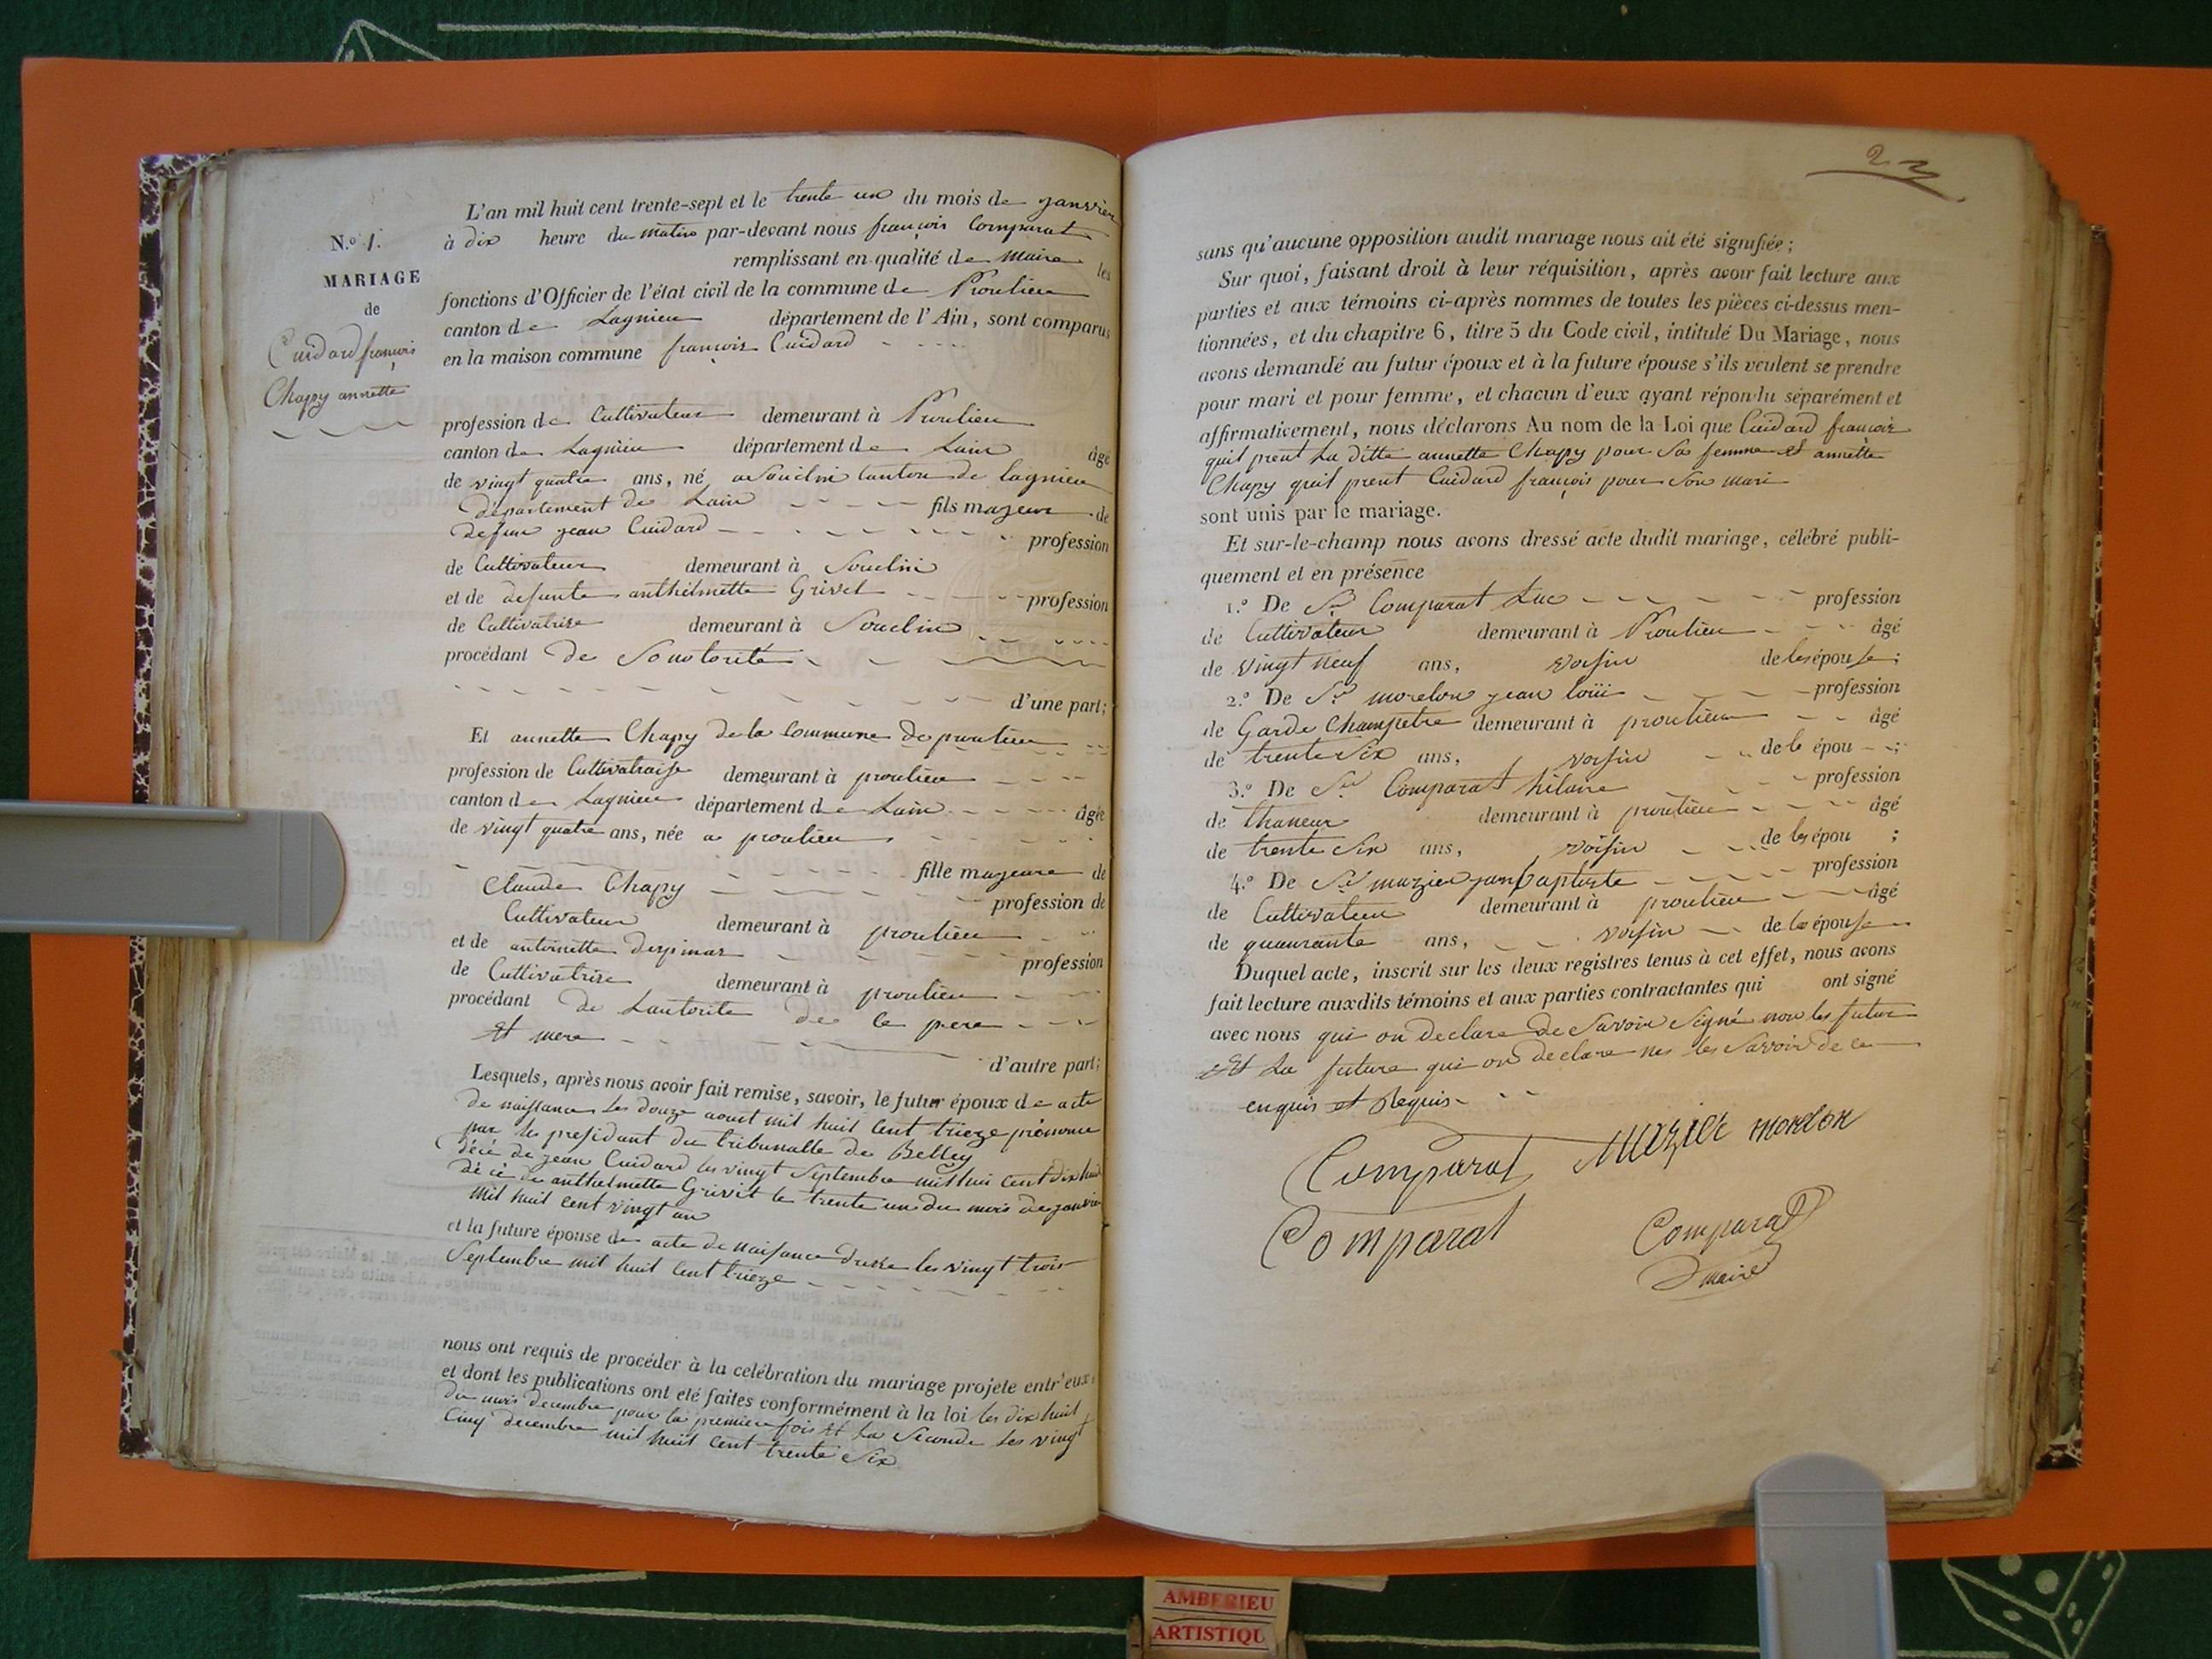 N.º 1.
MARIAGE
de
Cuidard françois
Chapy annette
L'an mil huit cent trente-sept et le trente un du mois de janvier
à dix heure du matin par-devant nous françois Comparat
remplissant en qualité de maire les
fonctions d'Officier de l'état civil de la commune de Proulieu
canton de Lagnieu département de l'Ain, sont comparus
en la maison commune françois Cuidard
profession de Cultivateur demeurant à Proulieu
canton de Lagnieu département de Lain âgé
de vingt quatre ans, né a Souclin Canton de lagnieu
département de Lain fils majeur de
defun jean Cuidard profession
de Cultivateur demeurant à Souclin
et de defunte anthelmette Grivet profession
de Cultivatrise demeurant à Souclin
procédant de Sonotorité
d'une part;
Et annette Chapy de la Commune de proulieu
profession de Cultivatraise demeurant à proulieu
canton de Lagnieu département de Lain âgée
de vingt quatre ans, née a proulieu
fille majeure de
Claude Chapy profession de
Cultivateur demeurant à proulieu
et de antoinette Derpinas profession
de Cultivatrise demeurant à proulieu
procédant de Lautorite de le pere
Et mere
d'autre part;
Lesquels, après nous avoir fait remise, savoir, le futur époux de acte
de naissance les douze aout mil huit Cent trieze prénonce
par les president du tribunalle de Belley
décé de jean Cuidard les vingt Septembre mil hui Cent dix huit
dé cé de anthelmette Grivit le trente un du mois de janvier
mil huit cent vingt un
et la future épouse de acte de naisance dresse les vingt trois
Septembre mil huit Cent trieze
nous ont requis de procéder à la celébration du mariage projete entr'eux,
et dont les publications ont eté faites conformément à la loi les dix huit
du mois decembre pour la premiere fois Et La Seconde les vingt
Cinq decembre mil huit Cent trente Six
23
sans qu'aucune opposition audit mariage nous ait été signifiée;
Sur quoi, faisant droit à leur réquisition, après avoir fait lecture aux
parties et aux témoins ci-après nommes de toutes les pièces ci-dessus men-
tionnées, et du chapitre 6, titre 5 du Code civil, intitulé Du Mariage, nous
avons demandé au futur époux et à la future épouse s'ils veulent se prendre
pour mari et pour femme, et chacun d'eux ayant répondu séparément et
affirmativement, nous déclarons Au nom de la Loi que Cuidard françois
quil prent La ditte annette Chapy pour Sa femme et annette
Chapy quil prent Cuidard françois pour Son mari
sont unis par le mariage.
Et sur-le-champ nous avons dressé acte dudit mariage, célébré publi-
quement et en présence
1.º De Sr Comparat Luc profession
de Cultivateur demeurant à Proulieu âgé
de vingt neuf ans, voisin de les épouse;
2.º De Sr morelon jean loüi profession
de Garde Champetre demeurant à proulieu âgé
de trente Six ans, voisin de le épou ;
3.º De Sr Comparat hilaire profession
de thaneur demeurant à proulieu âgé
de trente Six ans, voisin de les épou ;
4.º De Sr mazier jan baptiste profession
de Cultivateur demeurant à proulieu âgé
de quaurante ans, voisin de la épouse
Duquel acte, inscrit sur les deux registres tenus à cet effet, nous avons
fait lecture auxdits témoins et aux parties contractantes qui ont signé
avec nous qui on declare de Savoir Signé non les futur
Et La future qui on declare les Savoir de ce
enquis et Requis
Comparat Mazier morelon
Comparat Comparat
maire
AMBERIEU
ARTISTIQU